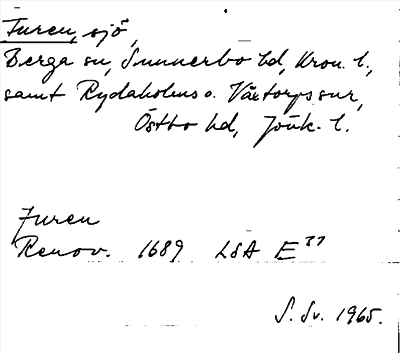 Furen, sjö,
Berga sn, Sunnerbo hd, Kron. l.,
samt Rydaholms o. Värtorps snr,
Östbo hd, Jönk. l.
Furen
Renov. 1689 LSA E 37
S. Sv. 1965.